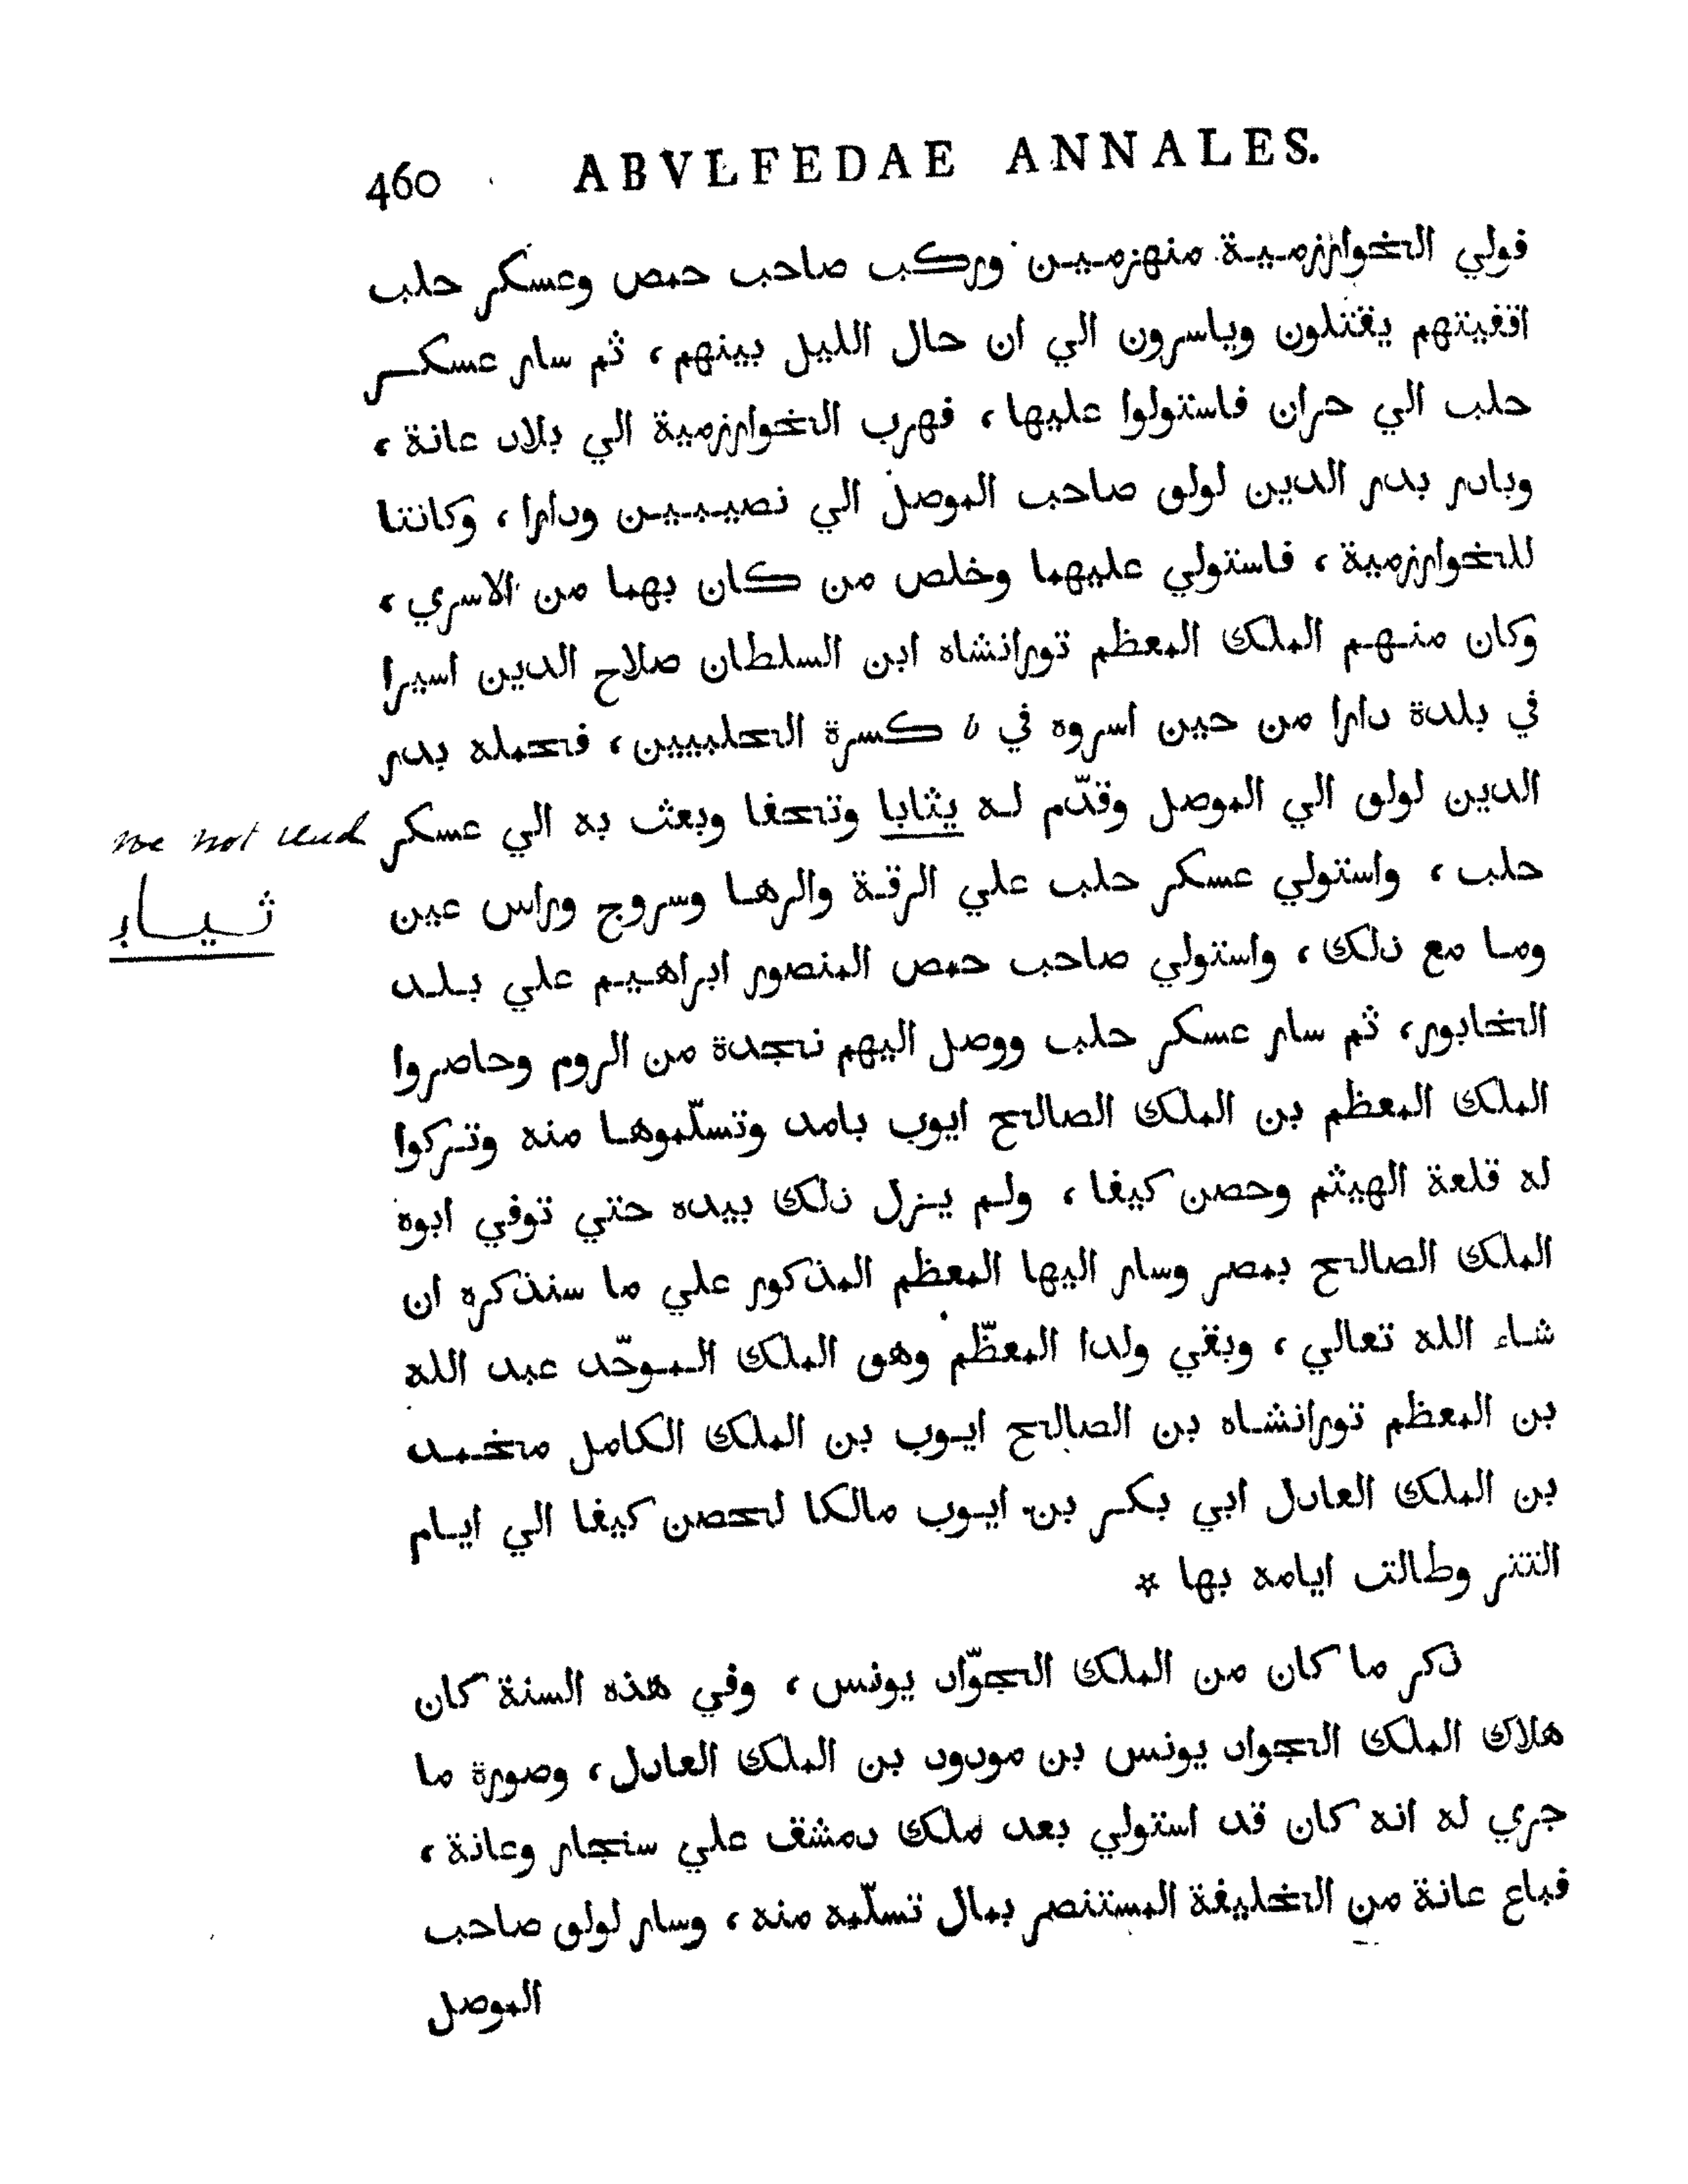 460 ABVLFEDAE ANNALES.
فولي الخوارزمية منهزمين وركب صاحب حمص وعسكر حلب
اقفيتهم يقتلون وياسرون الي ان حال الليل بينهم، ثم سار عسكر
حلب الي حران فاستولوا عليها، فهرب الخوارزمية الي بلاد عانة،
وبادر بدر الدين لولو صاحب الموصل الي نصيبين ودارا، وكانتا
للخوارزمية، فاستولي عليهما وخلص من كان بهما من الاسري،
وكان منهم الملك المعظم تورانشاه ابن السلطان صلاح الدين اسيرا
في بلدة دارا من حين اسروه في كسرة الحلبيين، فحمله بدر
الدين لولو الي الموصل وقدّم له يثابا وتحفا وبعث به الي عسكر
not
ثياب
حلب، واستولي عسكر حلب علي الرقة والرها وسروج وراس عين
وما مع ذلك، واستولي صاحب حمص المنصور ابراهيم علي بلد
الخابور، ثم سار عسكر حلب ووصل اليهم نجدة من الروم وحاصروا
الملك المعظم بن الملك الصالح ايوب بامد وتسلّموها منه وتركوا
له قلعة الهيثم وحصن كيفا، ولم يزل ذلك بيده حتي توفي ابوه
الملك الصالح بمصر وسار اليها المعظم المذكور علي ما سنذكره ان
شاء الله تعالي، وبقي ولدا المعظّم وهو الملك الموحّد عبد الله
بن المعظم تورانشاه بن الصالح ايوب بن الملك الكامل مخمد
بن الملك العادل ابي بكر بن ايوب مالكا لحصن كيفا الي ايام
التتر وطالت ايامه بها *
ذكر ما كان من الملك الجوّاد يونس، وفي هذه السنة كان
هلاك الملك الجواد يونس بن مودود بن الملك العادل، وصورة ما
جري له انه كان قد استولي بعد ملك دمشق علي سنجار وعانة،
فباع عانة من الخليفة المستنصر بمال تسلّمه منه، وسار لولو صاحب
الموصل